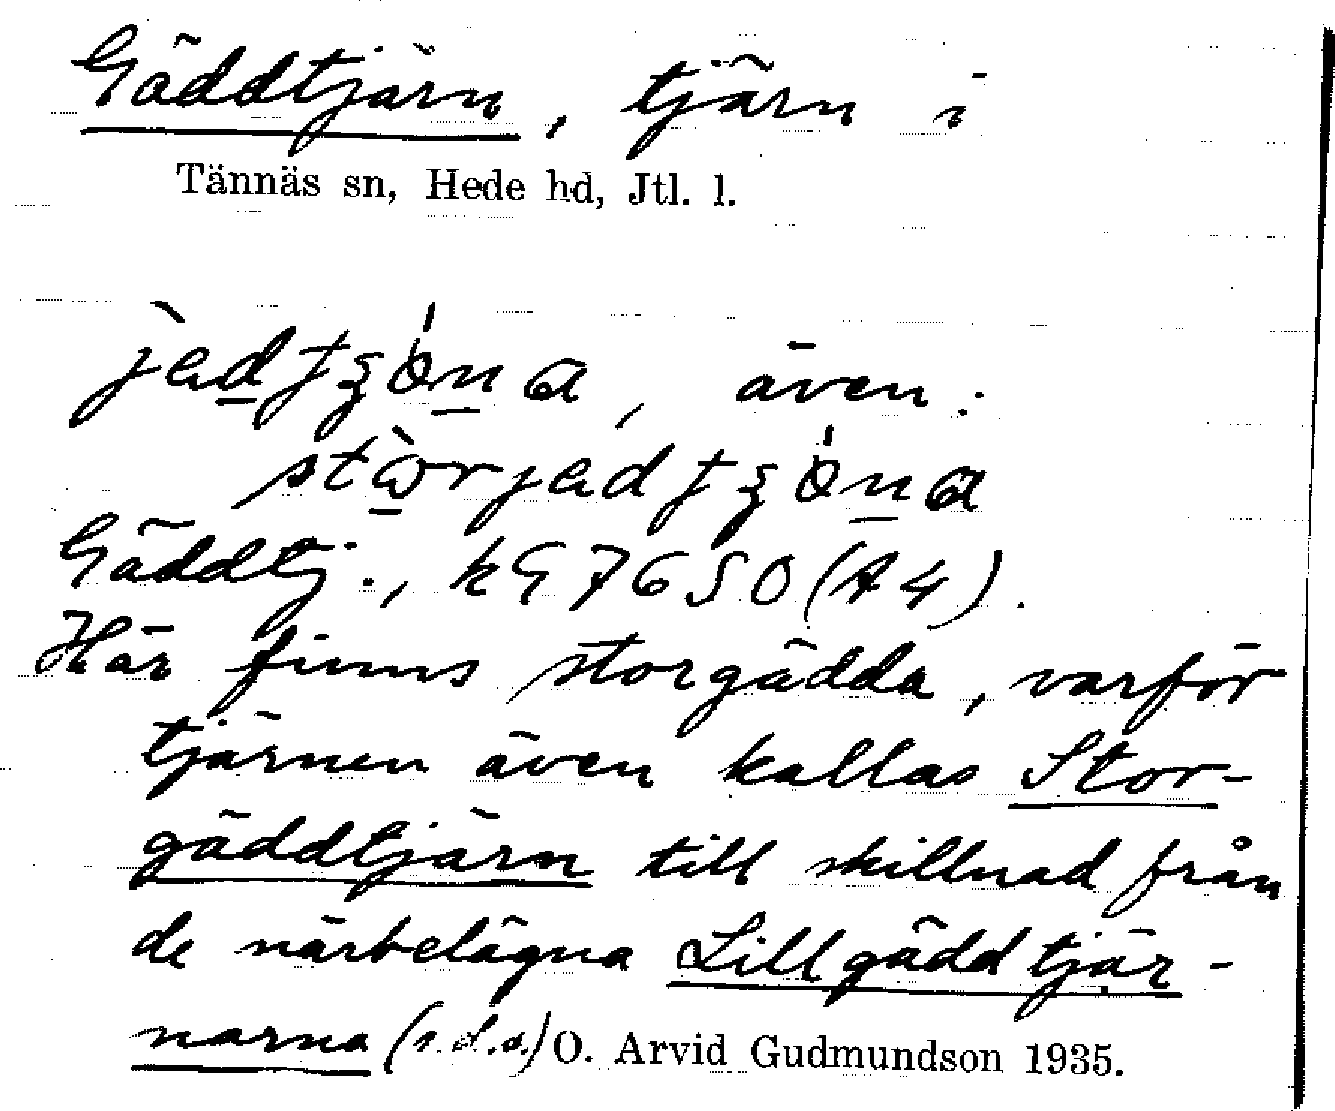 Gäddtjärn, tjärn i
Tännäs sn, Hede hd, Jtl. l.
även:
Gäddtj., kG7650 (A4).
Här finns storgädda, varför
tjärnen även kallas Stor-
gäddtjärn till skillnad från
de närbelägna Lillgäddtjär-
narna (s.d.o.) O. Arvid Gudmundson 1935.